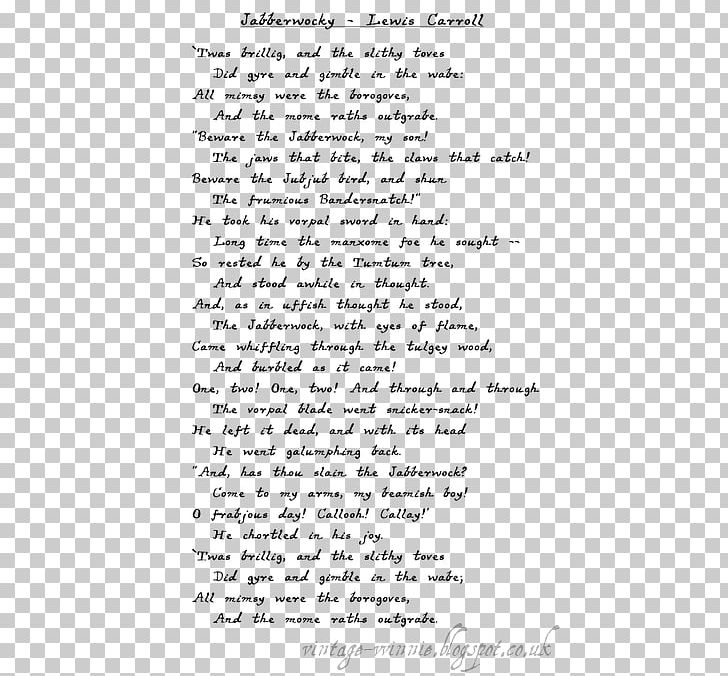 Jabberwocky - Lewis Carroll
`Twas brillig, and the slithy toves
Did gyre and gimble in the wabe:
All mimsy were the borogoves,
And the mome raths outgrabe.
"Beware the Jabberwock, my son!
The jaws that bite, the claws that catch!
Beware the Jubjub bird, and shun
The frumious Bandersnatch!"
He took his vorpal sword in hand:
Long time the manxome foe he sought --
So rested he by the Tumtum tree,
And stood awhile in thought.
And, as in uffish thought he stood,
The Jabberwock, with eyes of flame,
Came whiffling through the tulgey wood,
And burbled as it came!
One, two! One, two! And through and through
The vorpal blade went snicker-snack!
He left it dead, and with its head
He went galumphing back.
"And, has thou slain the Jabberwock?
Come to my arms, my beamish boy!
O frabjous day! Callooh! Callay!'
He chortled in his joy.
`Twas brillig, and the slithy toves
Did gyre and gimble in the wabe;
All mimsy were the borogoves,
And the mome raths outgrabe.
vintage-winnie.blogspot.co.uk